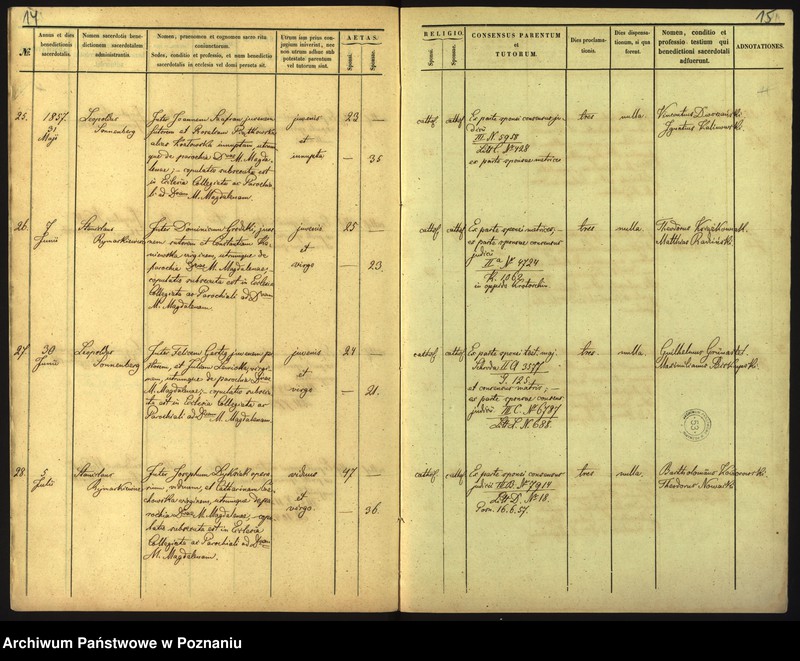 14
№
Annus et dies
benedictionis
sacerdotalis.
Nomen sacerdotis bene-
dictionem sacerdotalem
administrantis.
Nomen, praenomen et cognomen sacro ritu
coniunctorum.
Sedes, conditio et professio, et num benedictio
sacerdotalis in ecclesia vel domi peracta sit.
Utrum iam prius con-
jugium inierint, nec
non utrum adhuc sub
potestate parentum
vel tutorum sint.
AETAS.
Sponsi.
Sponsae.
25.
1857
31
Maji
Leopoldus
Sonnenberg
Inter Joannem Szafran juvenem
sutorem et Rosaliam
innuptam, utrum-
que de parochia D M. Magda-
lenae; – copulatio subsecuta est
in Ecclesia Collegiata ac Parochia-
li ad Divam M. Magdalenam.
juvenis
et
innupta
23 —
— 35
26.
7
Junii
Stanislaus
Rymarkiewicz
Inter Dominicum Grodzki, juve-
nem sutorem et Constantiam
virginem, utrumque de
parochia M. Magdalenae;
copulatio subsecuta est in Ecclesia
Collegiata ac Parochiali ad Divam
M. Magdalenam.
juvenis
et
virgo
25 —
— 23.
27.
30
Junii
Leopoldus
Sonnenberg
Inter Felicem juvenem
et Julianam virgi-
nem, utrumque de parochia
M. Magdalenae; – copulatio subsecu-
ta est in Ecclesia Collegiata ac
Parochiali ad Divam M. Magdalenam.
juvenis
et
virgo
24 —
— 21.
28.
5
Julii
Stanislaus
Rymarkiewicz
Inter Josephum opera-
rium, viduum, et Catharinam
virginem, utrumque de pa-
rochia M. Magdalenae; – copu-
latio subsecuta est in Ecclesia
Collegiata ac Parochiali ad Divam
M. Magdalenam.
viduus
et
virgo
47 —
— 36.
15.
RELIGIO.
Sponsi.
Sponsae.
CONSENSUS PARENTUM
et
TUTORUM.
Dies proclama-
tionis.
Dies dispensa-
tionum, si qua
forent.
Nomen, conditio et
professio testium qui
benedictioni sacerdotali
adfuerunt.
ADNOTATIONES.
cathol. cathol.
Ex parte sponsi consensus ju-
dicii
III. N. 5958
Litt. C. N. 128
ex parte sponsae matrices
tres
nulla.
Vincentius
Ignatius Kalinowski.
cathol. cathol.
Ex parte sponsi matrices; –
ex parte sponsae consensus
judicii
II a N. 4724
K. 1062
in oppido Krotoschin.
tres
nulla.
Theodorus
Matthaeus
cathol. cathol.
Ex parte sponsi test. maj.
II A 3577
G. 125.
et consensus matris; –
ex parte sponsae consens.
judicii III. C. N. 6787
Litt. L. N. 688.
tres
nulla.
Guilhelmus
Maximilianus Biskupski.
53
cathol. cathol.
Ex parte sponsi consensus
judicii III. B. N. 7914
Litt. D. N. 18.
Posn. 16. 6. 57.
tres
nulla.
Bartholomäus
Theodorus Nowacki.
Archiwum Państwowe w Poznaniu